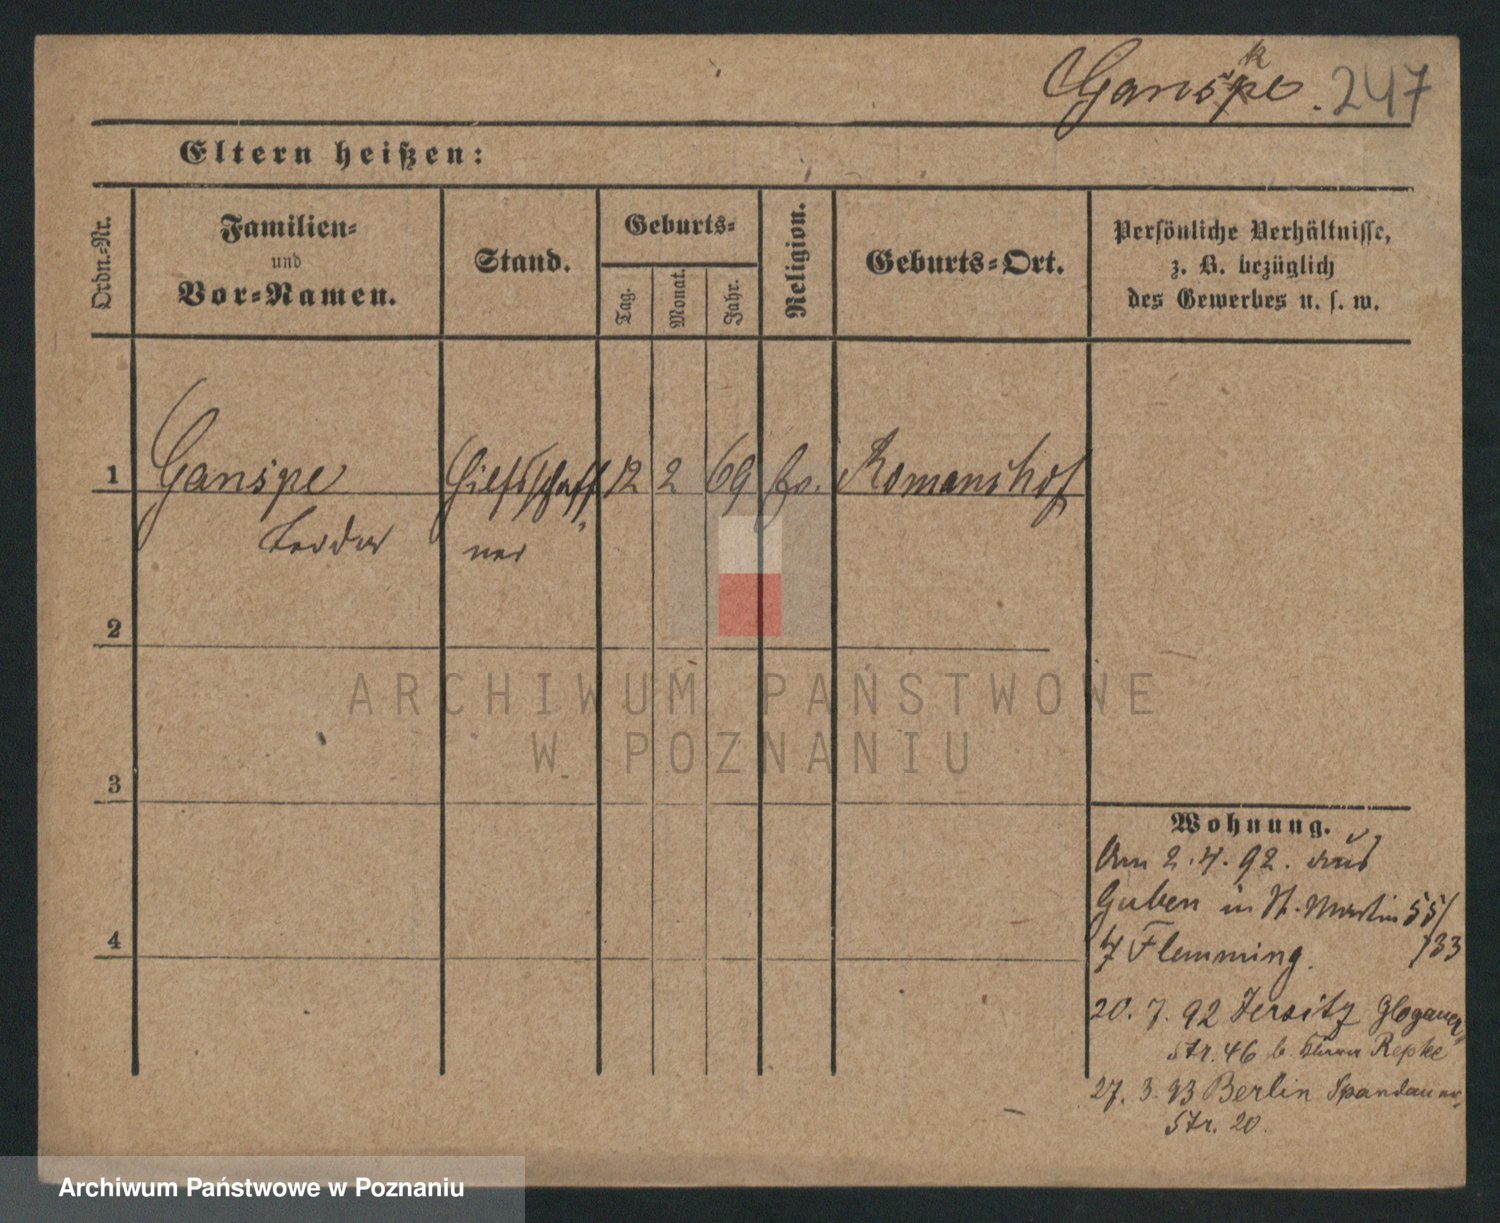 Ganske. 247
Eltern heißen:
Ordn.-Nr.
Familien-
und
Vor-Namen.
Stand.
Geburts-
Tag.
Monat.
Jahr.
Religion.
Geburts-Ort.
Persönliche Verhältnisse,
z. B. bezüglich
des Gewerbes u. s. w.
1 Ganspe Hilfsschaff- 12 2 69 Ev. Romanshof
ner
2
ARCHIWUM PAŃSTWOWE
W POZNANIU
3
Wohnung.
Am 2.4.92. aus
Guben in St. Martin 55/
Flemming. 133
20. 7. 92 Jersitz Glogauer
Str. 46 b. Repke
27. 3. 93 Berlin Spandauer
Str. 20.
4
Archiwum Państwowe w Poznaniu